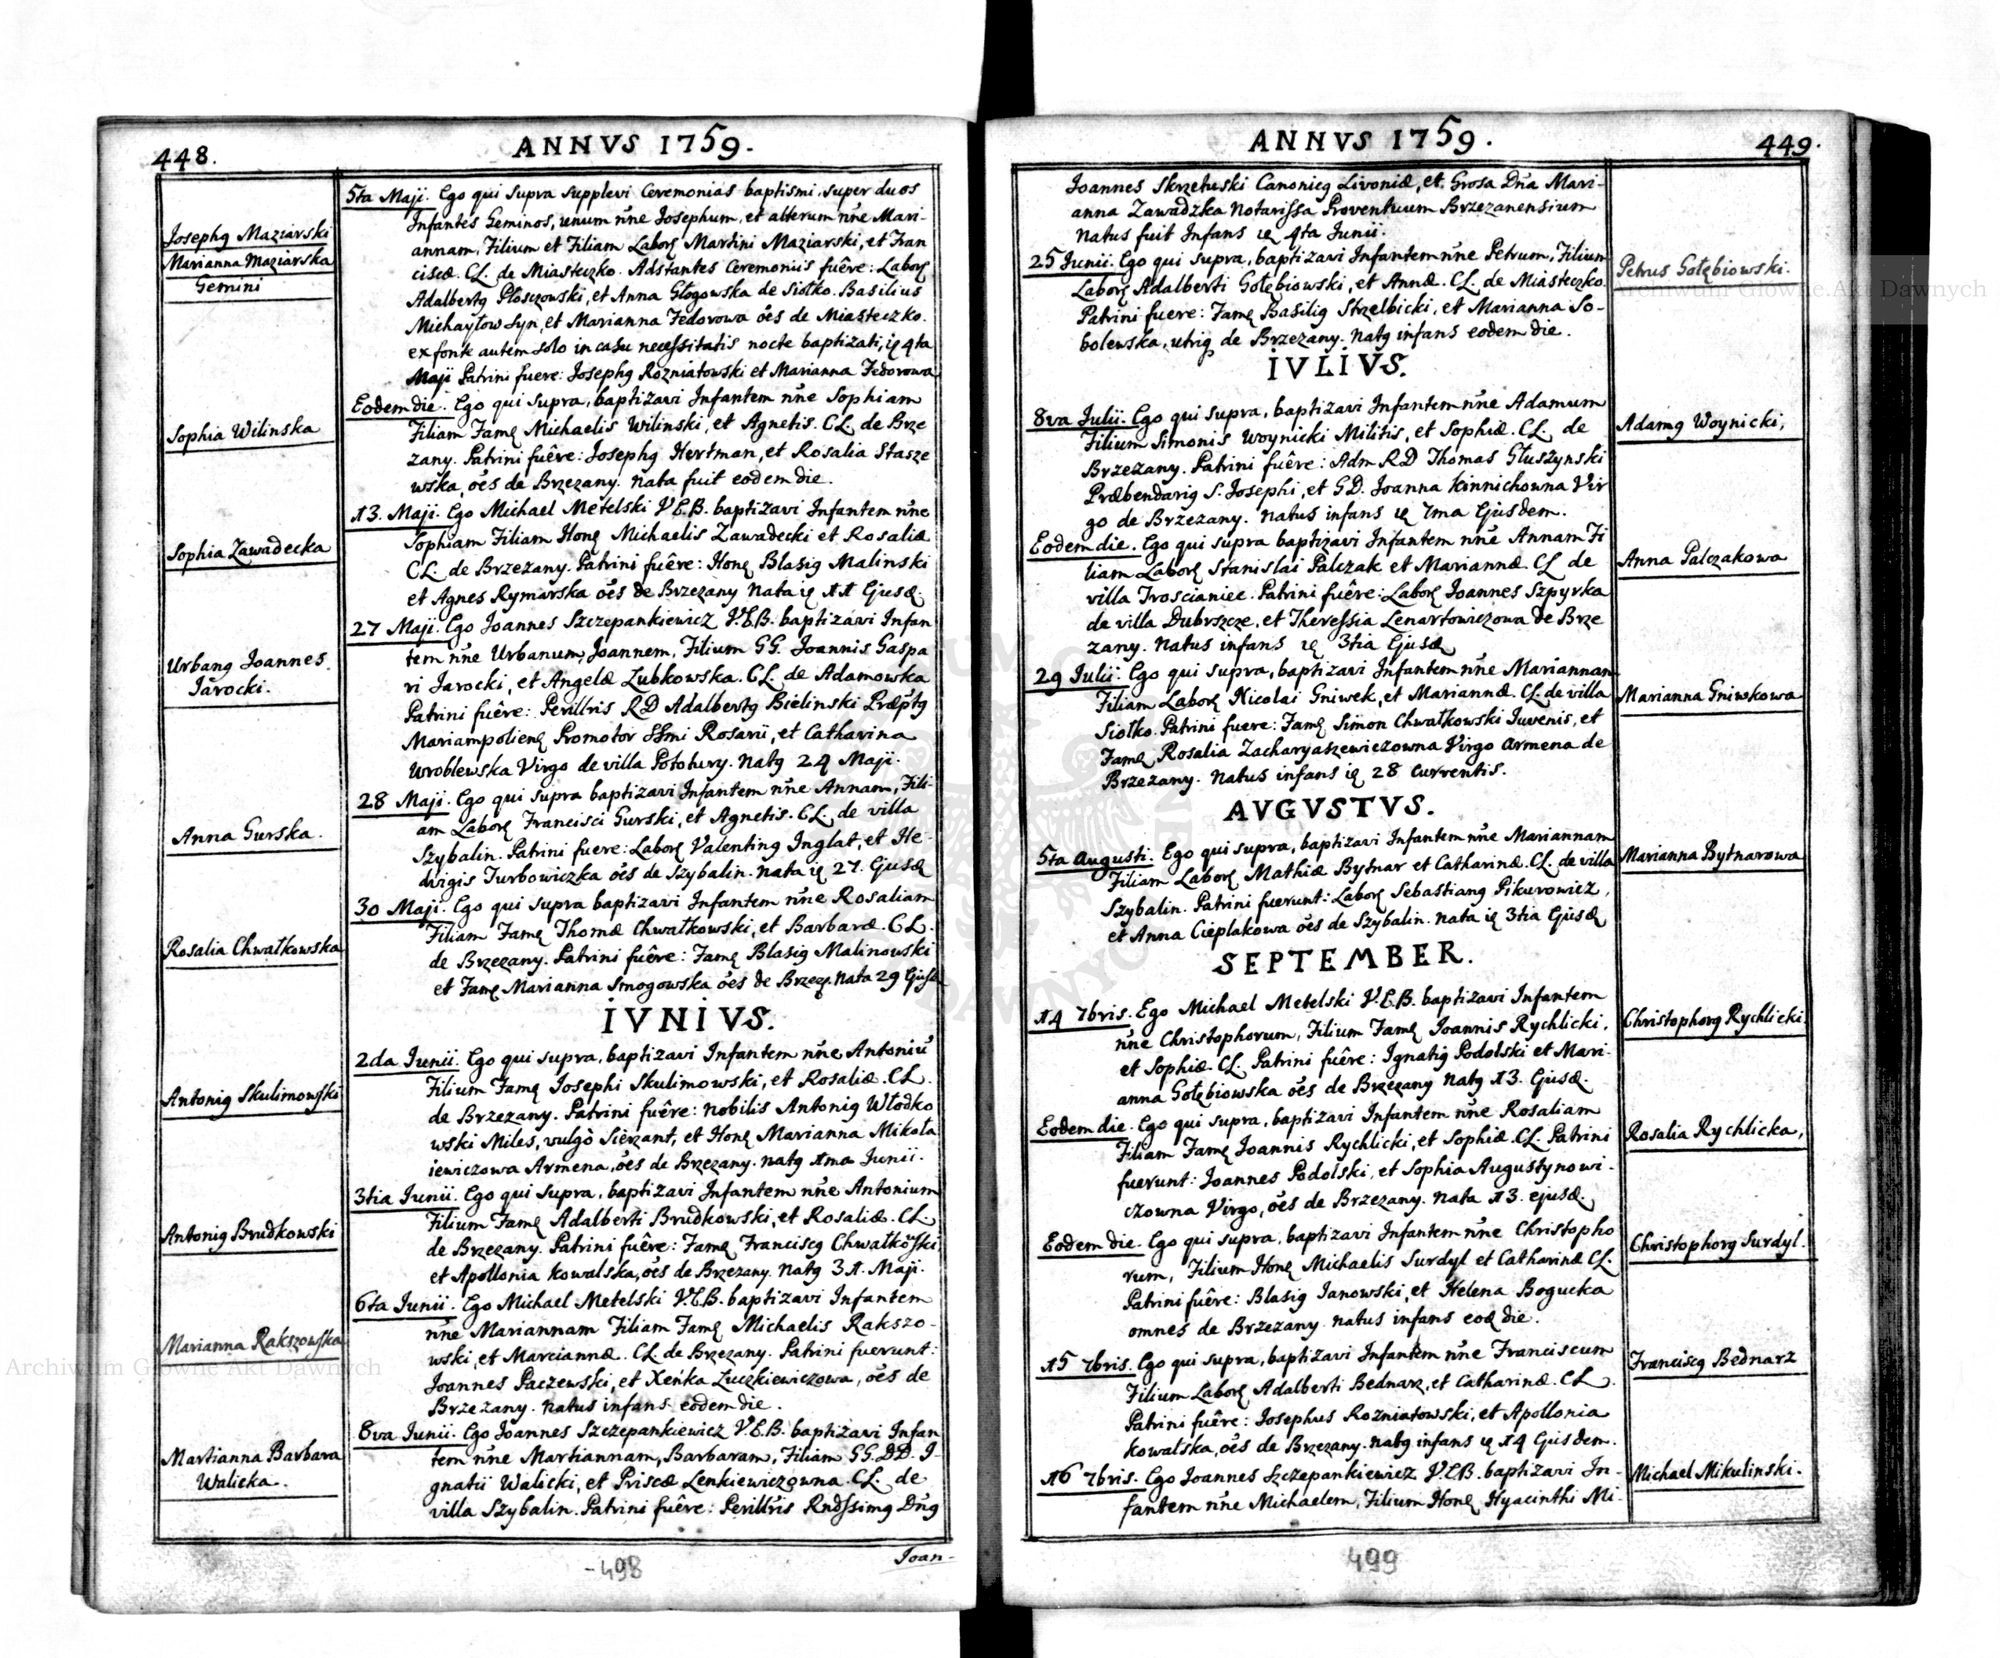 448.
ANNVS 1759.
Josephꝯ Maziarski
Marianna Maziarska
Gemini
Sophia Wilinska
Sophia Zawadecka
Urbanꝯ Joannes
Jarocki.
Anna Gurska.
Rosalia Chwałkowska
Antoniꝯ Skulimowski
Antoniꝯ Brudkowski
Marianna Rakszowska
Martianna Barbara
Walicka.
5ta Maji. Ego qui supra supplevi Ceremonias baptismi super duos
Infantes Geminos, unum nñe Josephum, et alterum nñe Mari-
annam, Filium et Filiam Laborꝭ Martini Maziarski, et Fran
ciscæ. CL. de Miasteczko. Adstantes Ceremoniis fuêre: Laborꝭ
Adalbertꝯ Płosczowski, et Anna Głogowska de Siołko. Basilius
Michayłow Syn, et Marianna Fedorowa oẽs de Miasteczko.
ex fonte autem solo in casu necessitatis nocte baptizati, ię 4ta
Maji Patrini fuere: Josephꝯ Rozniatowski et Marianna Fedorowa
Eodem die. Ego qui supra, baptizavi Infantem nñe Sophiam
Filiam Famꝭ Michaelis Wilinski, et Agnetis. CL. de Brze
zany. Patrini fuêre: Josephꝯ Hertman, et Rosalia Stasze
wska, oẽs de Brzezany. Nata fuit eodem die.
13. Maji. Ego Michael Metelski V.E.B. baptizavi Infantem nñe
Sophiam Filiam Honꝭ Michaelis Zawadecki et Rosaliæ
CL. de Brzezany. Patrini fuêre: Honꝭ Blasiꝯ Malinski
et Agnes Rymarska oẽs de Brzezany Nata ię 11 Ejusđ.
27 Maji. Ego Joannes Szczepankiewicz V.E.B. baptizavi Infan
tem nñe Urbanum, Joannem, Filium GG. Joannis Gaspa
ri Jarocki, et Angelæ Zubkowska. CL. de Adamowka
Patrini fuêre: Perillris RD Adalbertꝯ Bielinski Præptꝯ
Mariampolienꝭ Promotor SSmi Rosarii, et Catharina
Wroblewska Virgo de villa Potutury. Natꝯ 24 Maji.
28 Maji. Ego qui supra baptizavi Infantem nñe Annam, Fili-
am Laborꝭ Francisci Gurski, et Agnetis. CL. de villa
Szybalin. Patrini fuere: Laborꝭ Valentinꝯ Inglat, et He-
dvigis Turbowiczka oẽs de Szybalin. Nata ię 27. Ejusđ
30 Maji. Ego qui supra baptizavi Infantem nñe Rosaliam
Filiam Famꝭ Thomæ Chwałkowski, et Barbaræ. CL.
de Brzezany. Patrini fuêre: Famꝭ Blasiꝯ Malinowski
et Famꝭ Marianna Smogowska oẽs de Brzezꝭ. Nata 29 Ejusđ
IVNIVS.
2da Junii. Ego qui supra, baptizavi Infantem nñe Antoniũ
Filium Famꝭ Josephi Skulimowski, et Rosaliæ. CL.
de Brzezany. Patrini fuêre: Nobilis Antoniꝯ Włodko
wski Miles, vulgò Sierzant, et Honꝭ Marianna Mikoła
iewiczowa Armena, oẽs de Brzezany. Natꝯ 1ma Junii.
3tia Junii. Ego qui supra, baptizavi Infantem nñe Antonium
Filium Famꝭ Adalberti Brudkowski, et Rosaliæ. CL.
de Brzezany. Patrini fuêre: Famꝭ Franciscꝯ Chwałkõski
et Apollonia Kowalska, oẽs de Brzezany. Natꝯ 31. Maji.
6ta Junii. Ego Michael Metelski V.E.B. baptizavi Infantem
nñe Mariannam Filiam Famꝭ Michaelis Rakszo-
wski, et Marciannæ. CL de Brzezany. Patrini fuerunt:
Joannes Paczewski, et Xenka Łuczkiewiczowa, oẽs de
Brzezany. Natus infans eodem die.
8va Junii. Ego Joannes Szczepankiewicz V.E.B. baptizavi Infan
tem nñe Martiannam, Barbaram, Filiam GG. DD. I-
gnatii Walicki, et Priscæ Lenkiewiczowna. CL. de
villa Szybalin. Patrini fuêre: Perillris Rndssimꝯ Dñꝯ
Joan-
-498
ANNVS 1759.
449.
Joannes Skrzetuski Canonicꝯ Livoniæ, et Grosa Dña Mari-
anna Zawadzka Notarissa Proventuum Brzezanensium
Natus fuit Infans ię 4ta Junii.
25 Junii. Ego qui supra, baptizavi Infantem nñe Petrum, Filium
Laborꝭ Adalberti Gołębiowski, et Annæ. CL. de Miasteczko.
Patrini fuere: Famꝭ Basiliꝯ Strzelbicki, et Marianna So-
bolewska, utriqꝫ de Brzezany. Natꝯ infans eodem die.
IVLIVS.
8va Julii. Ego qui supra, baptizavi Infantem nñe Adamum
Filium Simonis Woynicki Militis, et Sophiæ. CL. de
Brzezany. Patrini fuêre: Adm RD Thomas Głuszynski
Præbendariꝯ S. Josephi, et GD. Joanna Kinnichowna Vir
go de Brzezany. Natus infans ię 7ma Ejusdem.
Eodem die. Ego qui supra baptizavi Infantem nñe Annam Fi
liam Laborꝭ Stanislai Palczak et Mariannæ. CL de
villa Troscianiec. Patrini fuêre: Laborꝭ Joannes Szpyrka
de villa Dubrszcze, et Theressia Lenartowiczowa de Brze
zany. Natus infans ię 3tia Ejusđ
29 Julii. Ego qui supra, baptizavi Infantem nñe Mariannam
Filiam Laborꝭ Nicolai Gniwek, et Mariannæ. CL. de villa
Siołko. Patrini fuere: Famꝭ Simon Chwałkowski Juvenis, et
Famꝭ Rosalia Zacharyaszewiczowna Virgo Armena de
Brzezany. Natus infans ię 28 Currentis.
AVGVSTVS.
5ta Augusti. Ego qui supra, baptizavi Infantem nñe Mariannam
Filiam Laborꝭ Mathiæ Bytnar et Catharinæ. CL. de villa
Szybalin. Patrini fuerunt: Laborꝭ Sebastianꝯ Pikurowicz,
et Anna Cieplakowa oẽs de Szybalin. Nata ię 3tia Ejusđ
SEPTEMBER.
14 7bris. Ego Michael Metelski V.E.B. baptizavi Infantem
nñe Christophorum, Filium Famꝭ Joannis Rychlicki,
et Sophiæ. CL. Patrini fuêre: Ignatiꝯ Podolski et Mari-
anna Gołębiowska oẽs de Brzezany Natꝯ 13. Ejusđ.
Eodem die. Ego qui supra, baptizavi Infantem nñe Rosaliam
Filiam Famꝭ Joannis Rychlicki, et Sophiæ. CL. Patrini
fuerunt: Joannes Podolski, et Sophia Augustynowi-
czowna Virgo, oẽs de Brzezany. Nata 13. ejusđ.
Eodem die. Ego qui supra, baptizavi Infantem nñe Christopho
rum, Filium Honꝭ Michaelis Surdyl et Catharinæ CL.
Patrini fuêre: Blasiꝯ Janowski, et Helena Bogucka
omnes de Brzezany. Natus infans eođ die.
15 7bris. Ego qui supra, baptizavi Infantem nñe Franciscum
Filium Laborꝭ Adalberti Bednarz, et Catharinæ. CL.
Patrini fuêre: Josephus Rozniatowski, et Apollonia
Kowalska, oẽs de Brzezany. Natꝯ infans ię 14 Ejusdem.
16 7bris. Ego Joannes Szczepankiewicz V.E.B. baptizavi In-
fantem nñe Michaelem, Filium Honꝭ Hyacinthi Mi-
Petrus Gołębiowski.
Adamꝯ Woynicki,
Anna Palczakowa
Marianna Gniwkowa
Marianna Bytnarowa
Christophorꝯ Rychlicki.
Rosalia Rychlicka,
Christophorꝯ Surdyl.
Franciscꝯ Bednarz
Michael Mikulinski.
499
Archiwum Główne Akt Dawnych
Archiwum Główne Akt Dawnych